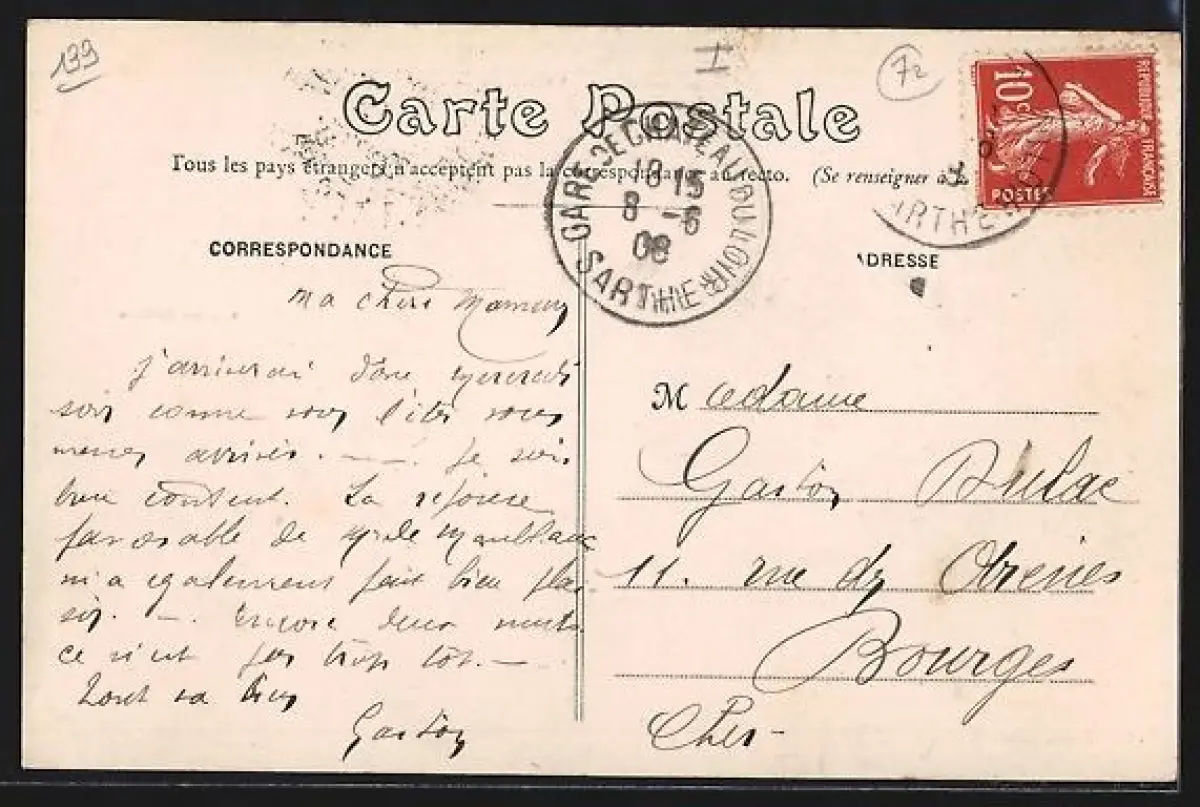 139
I
72
Carte Postale
Tous les pays étrangers n'acceptent pas la correspondance au recto. (Se renseigner à la
10c
REPUBLIQUE FRANÇAISE
POSTES
GARE DE CHATEAU DU LOIR
18 15
8 -6
08
SARTHE
SARTHE
CORRESPONDANCE
ADRESSE
Ma chère Maman
j'arriverai donc mercredi
soir comme vous l'êtes vous
mêmes arrivés. — Je suis
bien content. La réponse
favorable de Maublanc
m'a egalement fait bien plai
sir. — Encore deux nuits
ce n'est pas trop tôt. —
Tout va bien
Gaston
Madame
Gaston Dulac
11. rue des Arènes
Bourges
Cher-